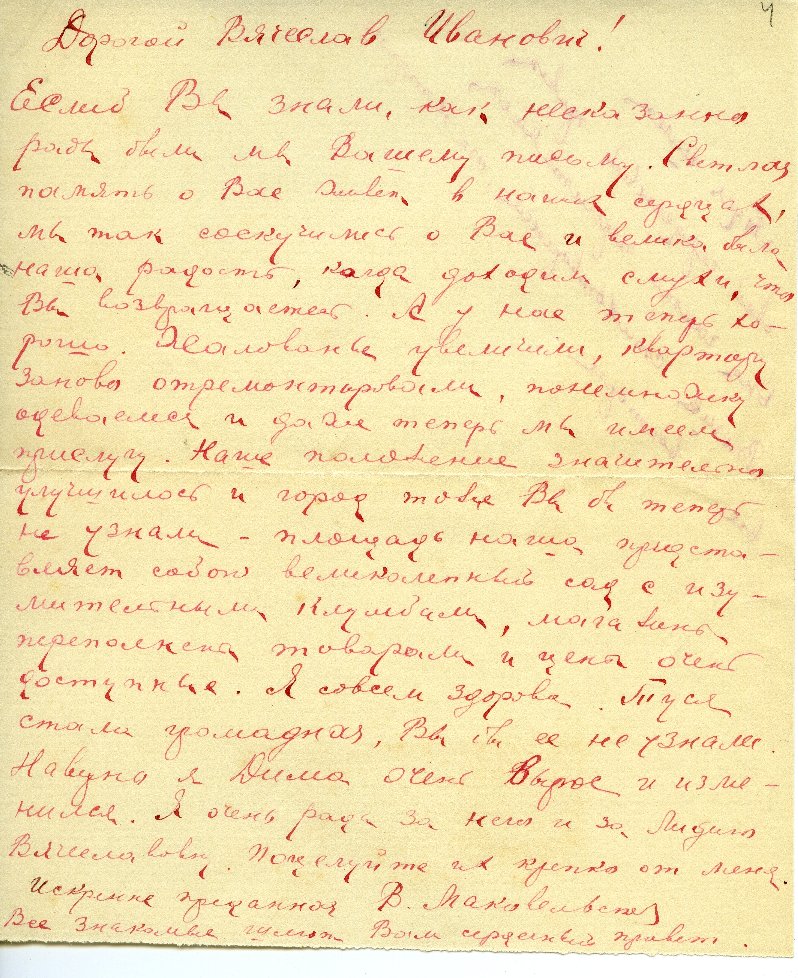 4
Дорогой Вячеслав Иванович!
Еслиб Вы знали, как несказанно
рады были мы Вашему письму. Светлая
память о Вас живет в наших сердцах,
мы так соскучились о Вас и велика была
наша радость, когда доходили слухи, что
Вы возвращаетесь. А у нас теперь хо-
рошо. Жалованье увеличили, квартиру
заново отремонтировали, понемножку
одеваемся и даже теперь мы имеем
прислугу. Наше положение значительно
улучшилось и город тоже Вы бы теперь
не узнали – площадь наша предста-
вляет собою великолепный сад с изу-
мительными клумбами, магазины
переполнены товарами и цены очень
доступные. Я совсем здорова. Туся
стала громадная, Вы бы ее не узнали.
Наверно и Дима очень вырос и изме-
нился. Я очень рада за него и за Лидию
Вячеславовну. Поцелуйте их крепко от меня.
Искренне преданная В. Маковельская
Все знакомые шлют Вам сердечный привет.